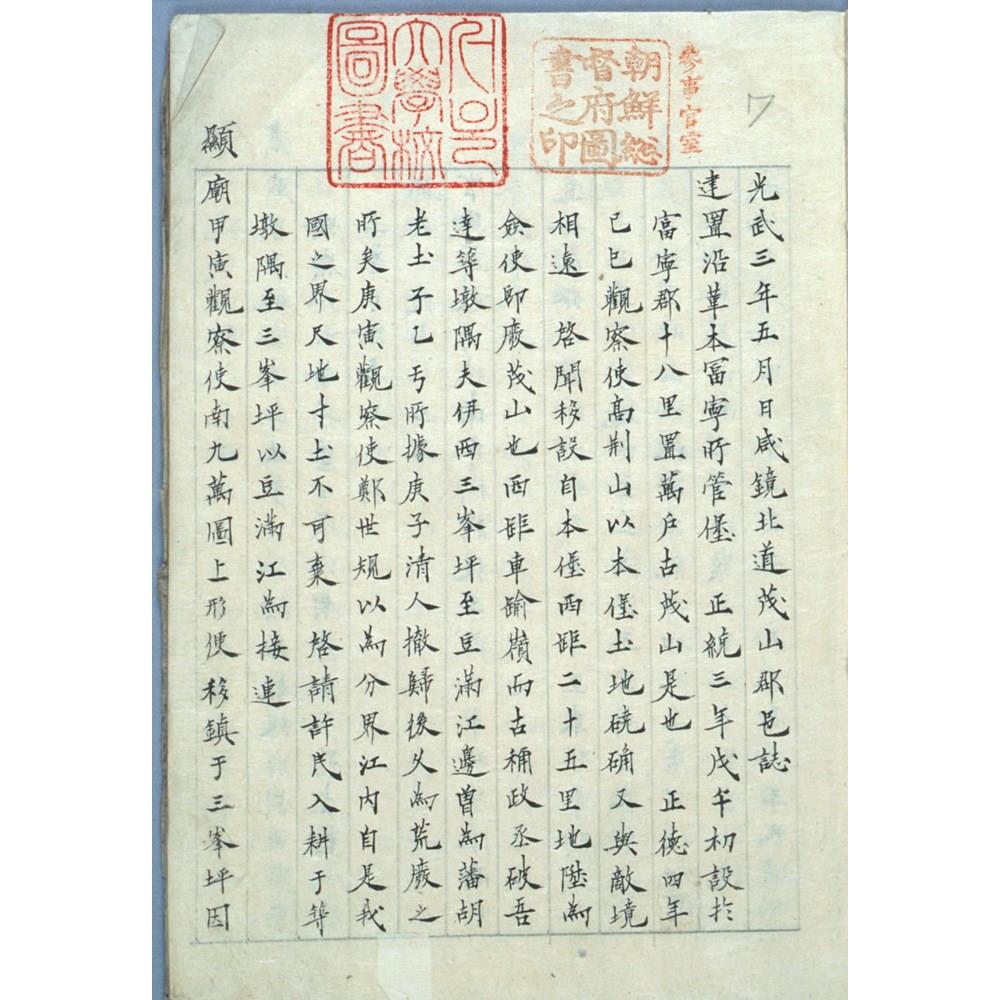 7
參事官室
朝鮮總督府圖書之印
서울大學校圖書
光武三年五月日咸鏡北道茂山郡邑誌
建置沿革本富寧所管堡 正統三年戊午初設於
富寧郡十八里置萬戶古茂山是也 正德四年
己巳觀察使高荊山以本堡土地磽确又與敵境
相遠 啓聞移設自本堡西距二十五里地陞為
僉使卽廢茂山也西距車踰嶺而古稱政丞破吾
達等墩隅夫伊西三峯坪至豆滿江邊曾為藩胡
老土子乙丐所據庚子清人撤歸後久為荒廢之
所矣庚寅觀察使鄭世規以為分界江內自是我
國之界尺地寸土不可棄 啓請許民入耕于等
墩隅至三峯坪以豆滿江為接連
顯廟甲寅觀察使南九萬圖上形便移鎮于三峯坪因